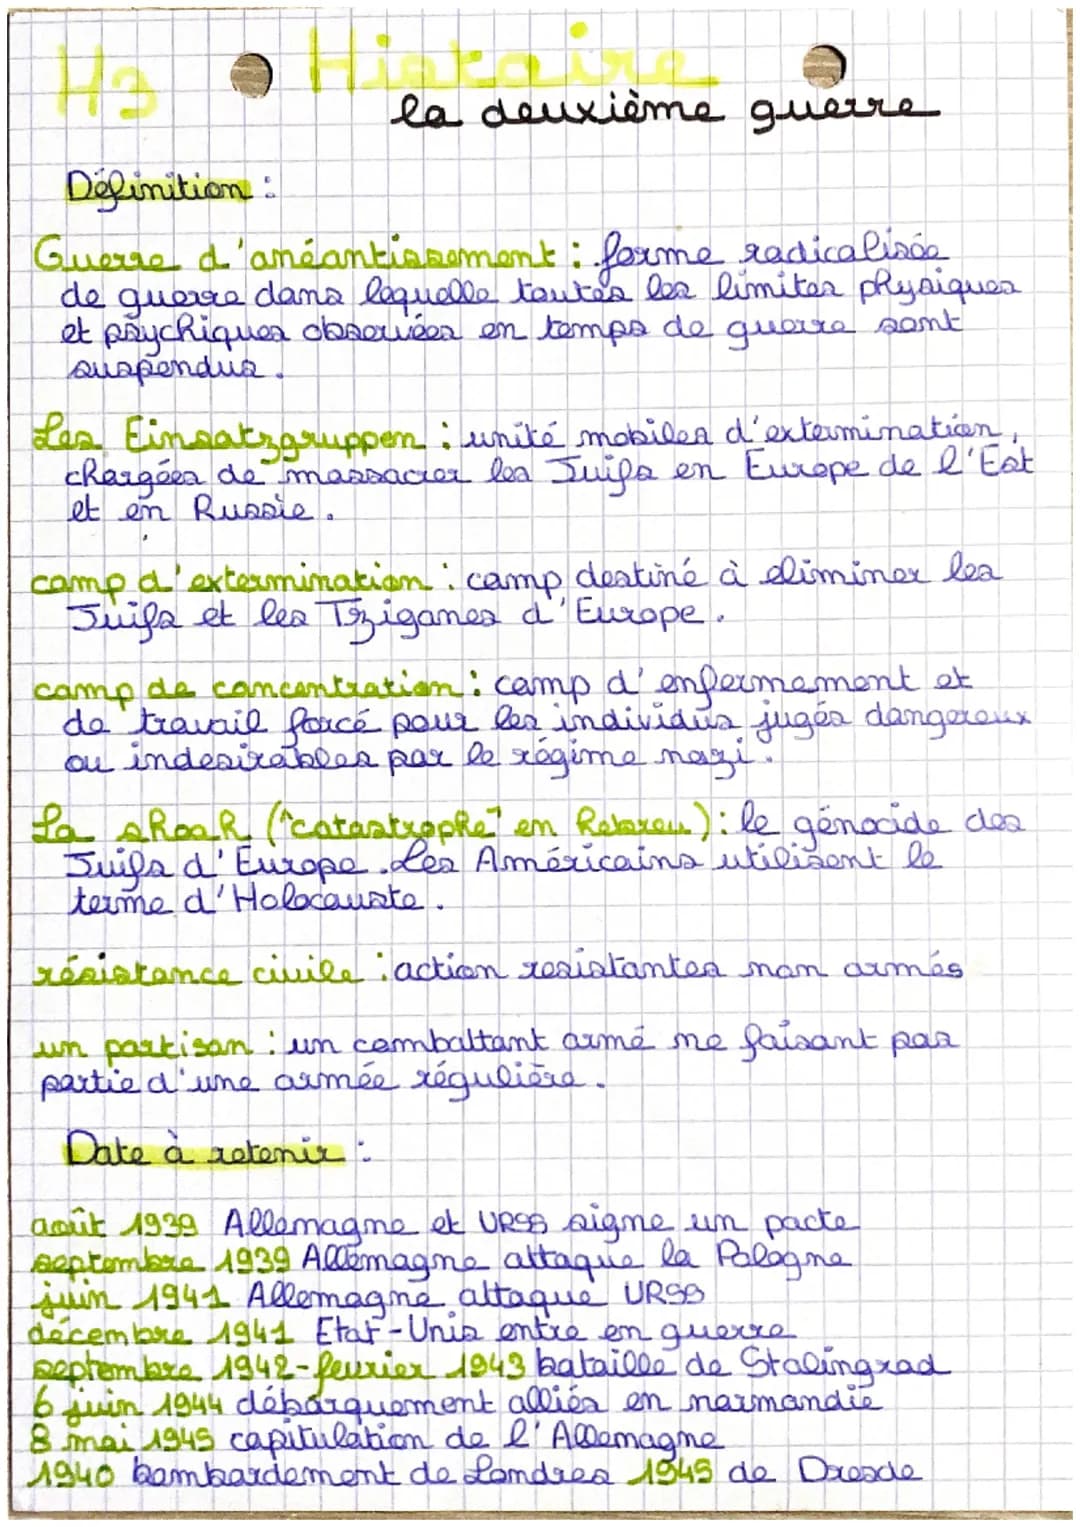 H3 Histoire
la deuxième guerre
Définition :
Guerre d'anéantissement : forme radicalisée
de guerre dans laquelle toutes les limites physiques
et psychiques observées en temps de guerre sont
suspendus.
Les Einsatzgruppen : unité mobiles d'extermination,
chargées de massacrer les Juifs en Europe de l'Est
et en Russie.
camp d'extermination : camp destiné à eliminer les
Juifs et les Tziganes d'Europe.
camp de concentration : camp d'enfermement et
de travail forcé pour les individus jugés dangereux
ou indesirables par le régime nazi.
La shoah ("catastrophe" en hebreu) : le génocide des
Juifs d'Europe. Les Américains utilisent le
terme d'Holocauste.
résistance civile : action resistantes non armés
un partisan : un combattant armé ne faisant pas
partie d'une armée régulière.
Date à retenir :
août 1939 Allemagne et URSS signe un pacte
septembre 1939 Allemagne attaque la Pologne
juin 1941 Allemagne attaque URSS
décembre 1941 Etat-Unis entre en guerre
septembre 1942-fevrier 1943 bataille de Stalingrad
6 juin 1944 débarquement alliés en normandie
8 mai 1945 capitulation de l'Allemagne
1940 bombardement de Londres 1945 de Dresde